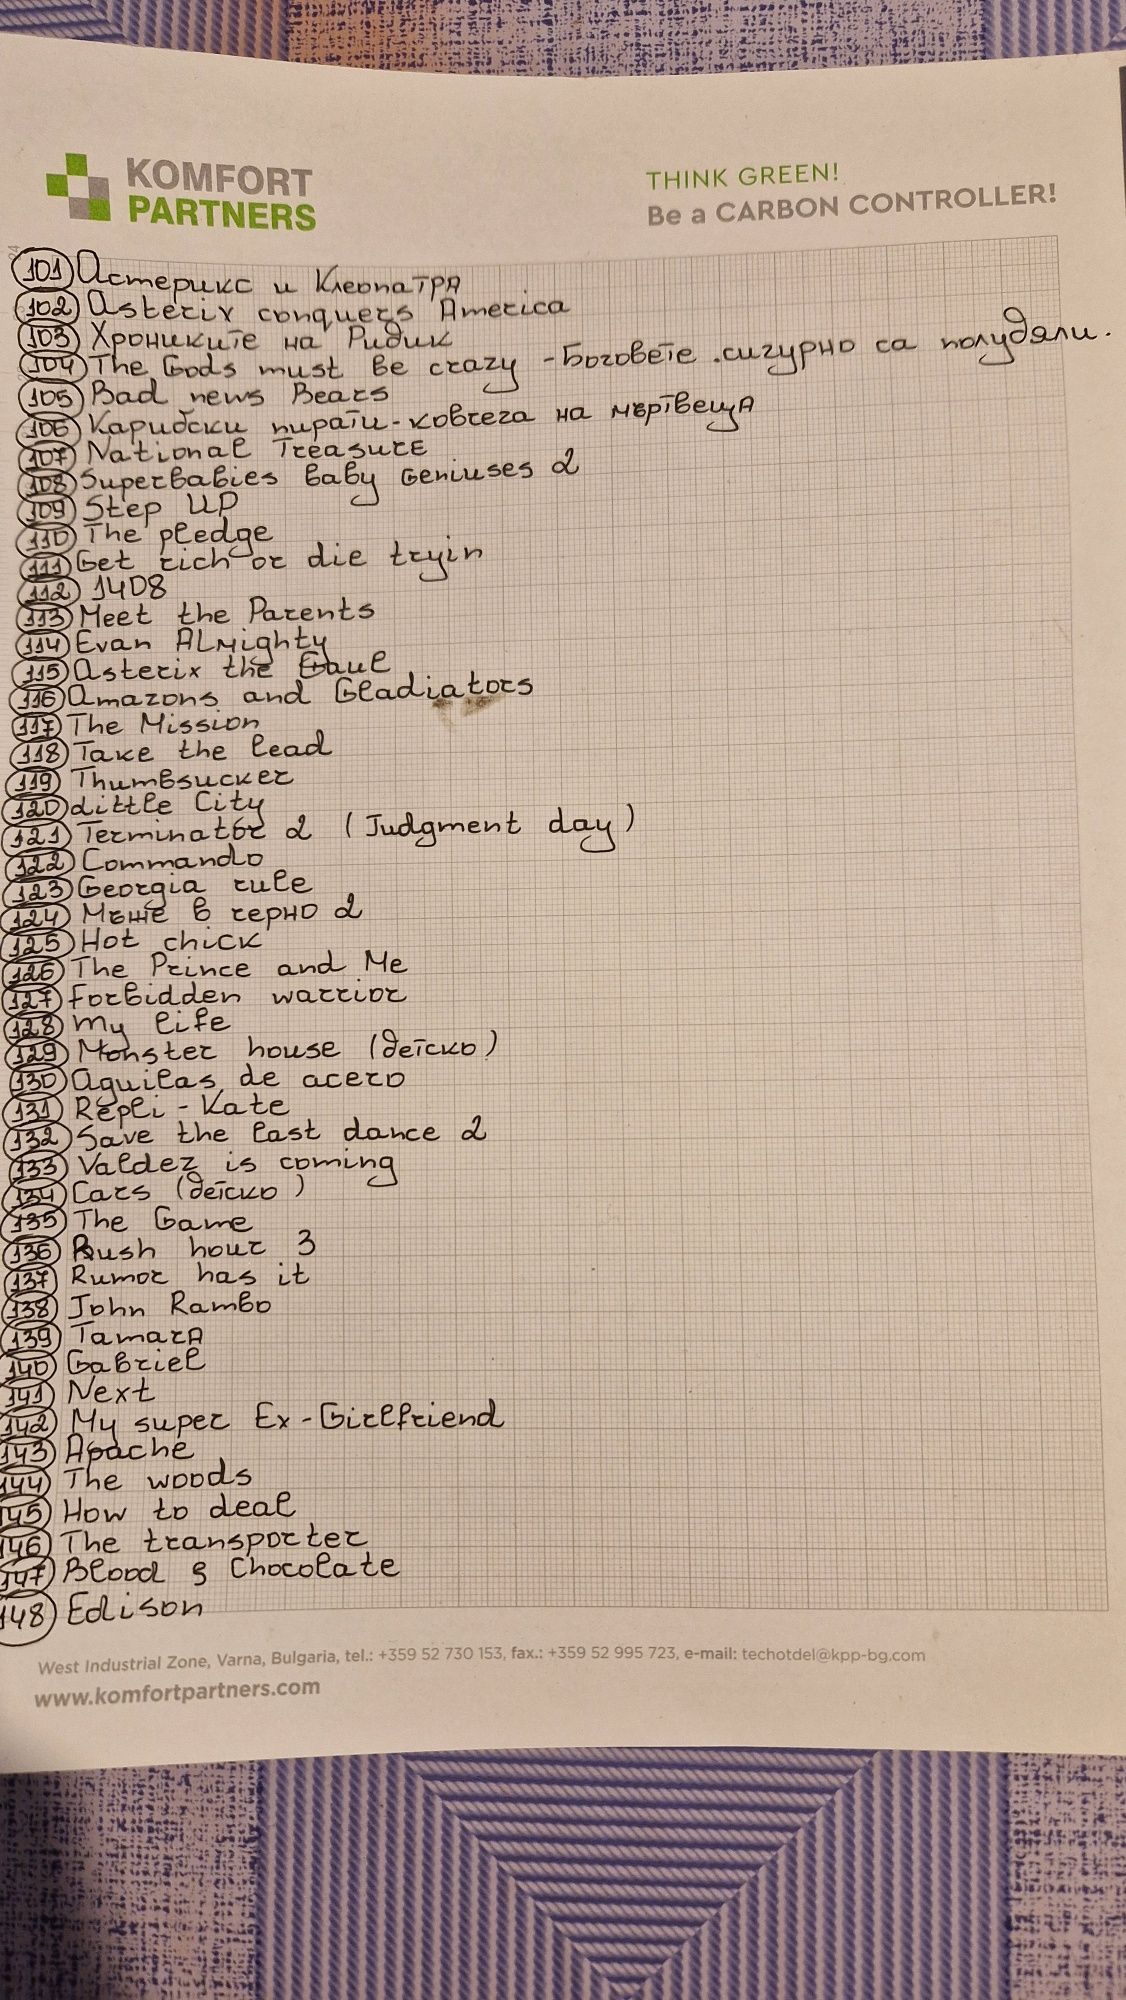 KOMFORT
PARTNERS
THINK GREEN!
Be a CARBON CONTROLLER!
101 Астерикс и Клеопатра
102 Asterix conquers America
103 Хрониките на Ридик
104 The Gods must be crazy - Боговете сигурно са полудяли.
105 Bad news Bears
106 Карибски пирати - ковчега на мъртвеца
107 National Treasure
108 Superbabies baby Geniuses 2
109 Step UP
110 The pledge
111 Get rich or die tryin
112 1408
113 Meet the Parents
114 Evan Almighty
115 Asterix the Gaul
116 Amazons and Gladiators
117 The Mission
118 Take the lead
119 Thumbsucker
120 Little City
121 Terminator 2 (Judgment day)
122 Commando
123 Georgia rule
124 Мъже в черно 2
125 Hot chick
126 The Prince and Me
127 Forbidden warrior
128 My life
129 Monster house (детско)
130 Aguilas de acero
131 Repli - Kate
132 Save the last dance 2
133 Valdez is coming
134 Cars (детско)
135 The Game
136 Rush hour 3
137 Rumor has it
138 John Rambo
139 Tamara
140 Gabriel
141 Next
142 My super Ex - Girlfriend
143 Apache
144 The woods
145 How to deal
146 The transporter
147 Blood & Chocolate
148 Edison
West Industrial Zone, Varna, Bulgaria, tel.: +359 52 730 153, fax.: +359 52 995 723, e-mail: techotdel@kpp-bg.com
www.komfortpartners.com